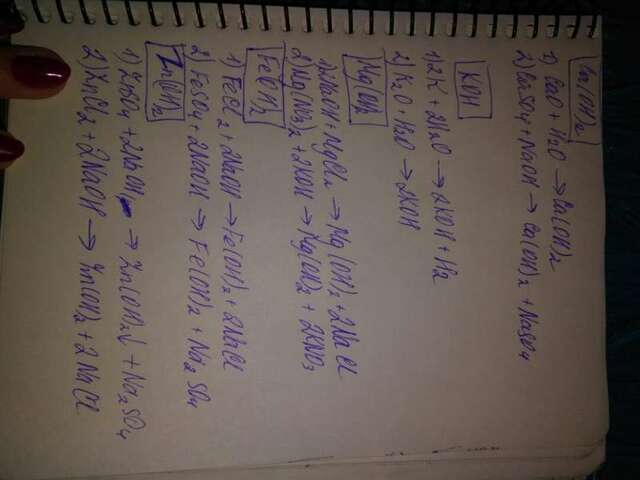 Ca(OH)2
1) CaO + H2O → Ca(OH)2
2) CaSO4 + NaOH → Ca(OH)2 + NaSO4
KOH
1) 2K + 2H2O → 2KOH + H2
2) K2O + H2O → 2KOH
Mg(OH)2
1) NaOH + MgCl2 → Mg(OH)2 + 2NaCl
2) Mg(NO3)2 + 2KOH → Mg(OH)2 + 2KNO3
Fe(OH)2
1) FeCl2 + 2NaOH → Fe(OH)2 + 2NaCl
2) FeSO4 + 2NaOH → Fe(OH)2 + Na2SO4
Zn(OH)2
1) ZnSO4 + 2NaOH → Zn(OH)2↓ + Na2SO4
2) ZnCl2 + 2NaOH → Zn(OH)2 + 2NaCl